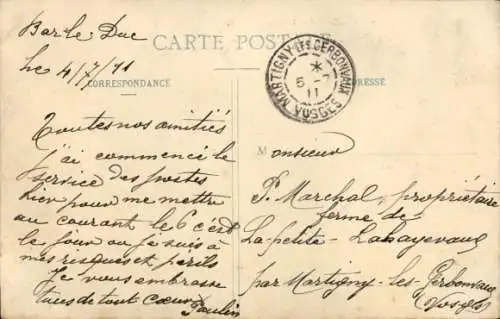 Bar le Duc
le 4/7/11
CARTE POSTALE
CORRESPONDANCE
ADRESSE
MARTIGNY-LES-GERBONVAUX
*
5 -7
11
VOSGES
Toutes nos amitiés
j'ai commencé le
service des postes
hier pour me mettre
au courant le 6 c'est
le jour où je suis à
mes risques et périls
Je vous embrasse
tous de tout cœur
Paulin
Monsieur
P. Marchal, propriétaire
ferme de
La petite - Lahayevaux
par Martigny-les-Gerbonvaux
(Vosges)